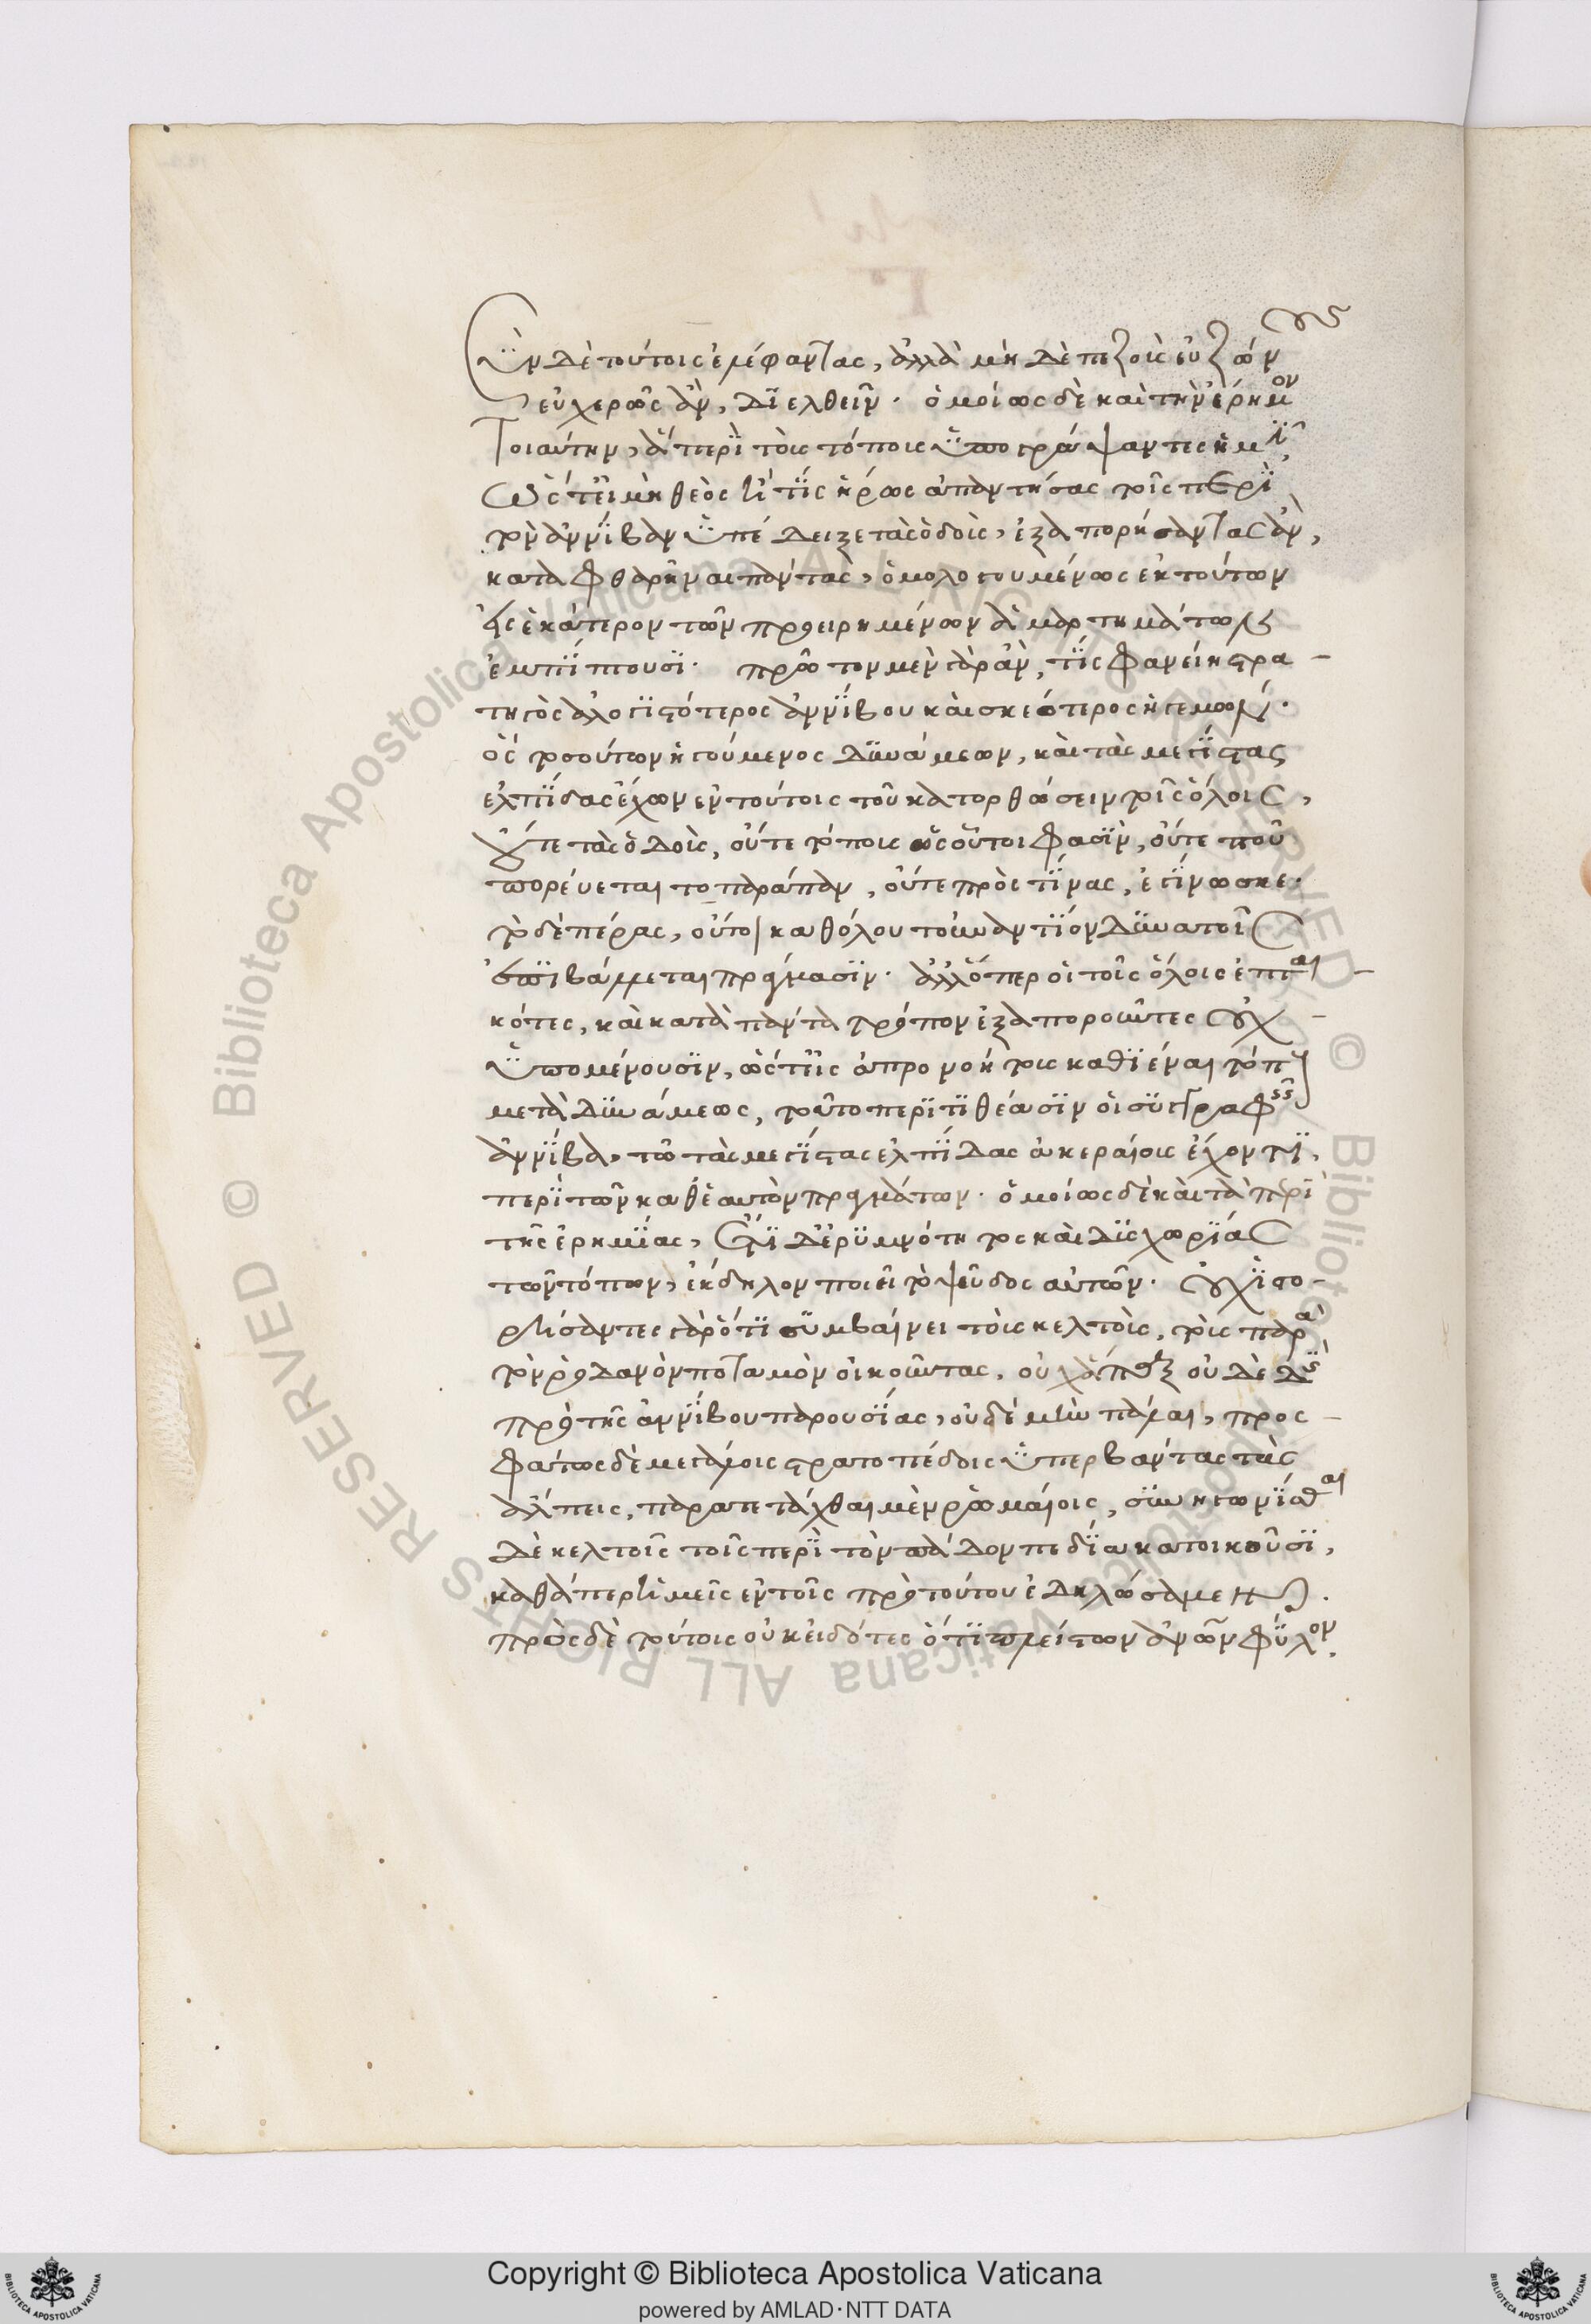 σὺν δὲ τούτοις ἐλέφαντας, ἀλλὰ μηδὲ πεζοὺς εὐζώνους
εὐχερῶς ἂν, διελθεῖν. ὁμοίως δὲ καὶ τὴν ἔρημον
τοιαύτην, ἅ περὶ τοὺς τόπους ὑπογράψαντες ἡμῖν,
ὥστ εἰ μὴ θεὸς ἤ τις ἥρως ἀπαντήσας τοῖς περὶ
τὸν ἀννίβαν ὑπέδειξε τὰς ὁδοὺς, ἐξαπορήσαντας ἂν,
καταφθαρῆναι πάντας, ὁμολογουμένως ἐκ τούτων
εἰς ἑκάτερον τῶν προειρημένων ἁμαρτημάτων
ἐμπίπτουσι. πρῶτον μὲν γὰρ ἂν, τίς φανείη στρα-
τηγὸς ἀλογιστότερος ἀννίβου καὶ σκαιότερος ἡγεμών.
ὃς τοσούτων ἡγούμενος δυνάμεων, καὶ τὰς μεγίστας
ἐλπίδας ἔχων ἐν τούτοις τοῦ κατορθώσειν τοῖς ὅλοις,
οὔτε τὰς ὁδοὺς, οὔτε τόπους ὡς οὗτοι φασὶν, οὔτε ποῦ
πορεύεται τὸ παράπαν, οὔτε πρὸς τίνας, ἐγίνωσκε.
τὸ δὲ πέρας, οὐδ εἰ καθόλου τοὐναντίον δυνατοῖς
ἐπιβάλλεται πράγμασιν. ἀλλ ὅπερ οἱ τοῖς ὅλοις ἐπται-
κότες, καὶ κατὰ πάντα τρόπον ἐξαποροῦντες οὐχ
ὑπομένουσιν, ὥστ εἰς ἀπρονοήτους καθιέναι τόπους
μετὰ δυνάμεως, τοῦτο περιτιθέασιν οἱ συγγραφεῖς
ἀννίβᾳ, τῷ τὰς μεγίστας ἐλπίδας ἀκεραίους ἔχοντι,
περὶ τῶν καθ ἑαυτὸν πραγμάτων. ὁμοίως δὲ καὶ τὰ περὶ
τῆς ἐρημίας, ἔτι δ ἐρυμνότητος καὶ δυσχωρίας
τῶν τόπων, ἔκδηλον ποιεῖ τὸ ψεῦδος αὐτῶν. οὐχ ἱστο-
ρήσαντες γὰρ ὅτι συμβαίνει τοὺς κελτοὺς, τοὺς παρὰ
τὸν ῥοδανὸν ποταμὸν οἰκοῦντας, οὐχ ἅπαξ οὐδὲ δὶς
πρὸ τῆς ἀννίβου παρουσίας, οὐδὲ μὴν πάλαι, προσ-
φάτως δὲ μεγάλοις στρατοπέδοις ὑπερβάντας τὰς
ἄλπεις, παρατετάχθαι μὲν ῥωμαίοις, συνηγωνίσθαι
δὲ κελτοῖς τοῖς περὶ τὸν πάδον πεδία κατοικοῦσι,
καθάπερ ἡμεῖς ἐν τοῖς πρὸ τούτου ἐδηλώσαμεν.
πρὸς δὲ τούτοις οὐκ εἰδότες ὅτι πλεῖστον ἀν ῶν φύλον.
Copyright © Biblioteca Apostolica Vaticana
powered by AMLAD·NTT DATA